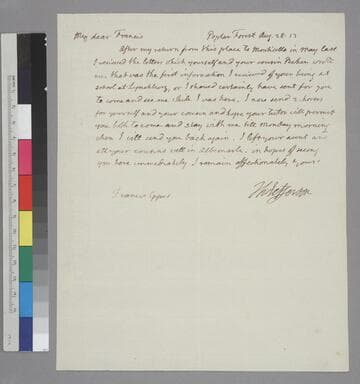 My dear Francis Poplar Forest Aug. 28. 13
After my return from this place to Monticello in May last
I recieved the letter which yourself and your cousin Baker wrote
me. that was the first information I recieved of your being at
school at Lynchburg, or I should certainly have sent for you
to come and see me while I was here. I now send 2. horses
for yourself and your cousin and hope your tutor will permit
you both to come and stay with me till Monday morning
when I will send you back again. I left your aunt and
all your cousins well in Albemarle. in hopes of seeing
you here immediately I remain affectionately yours
Th Jefferson
Francis Eppes.